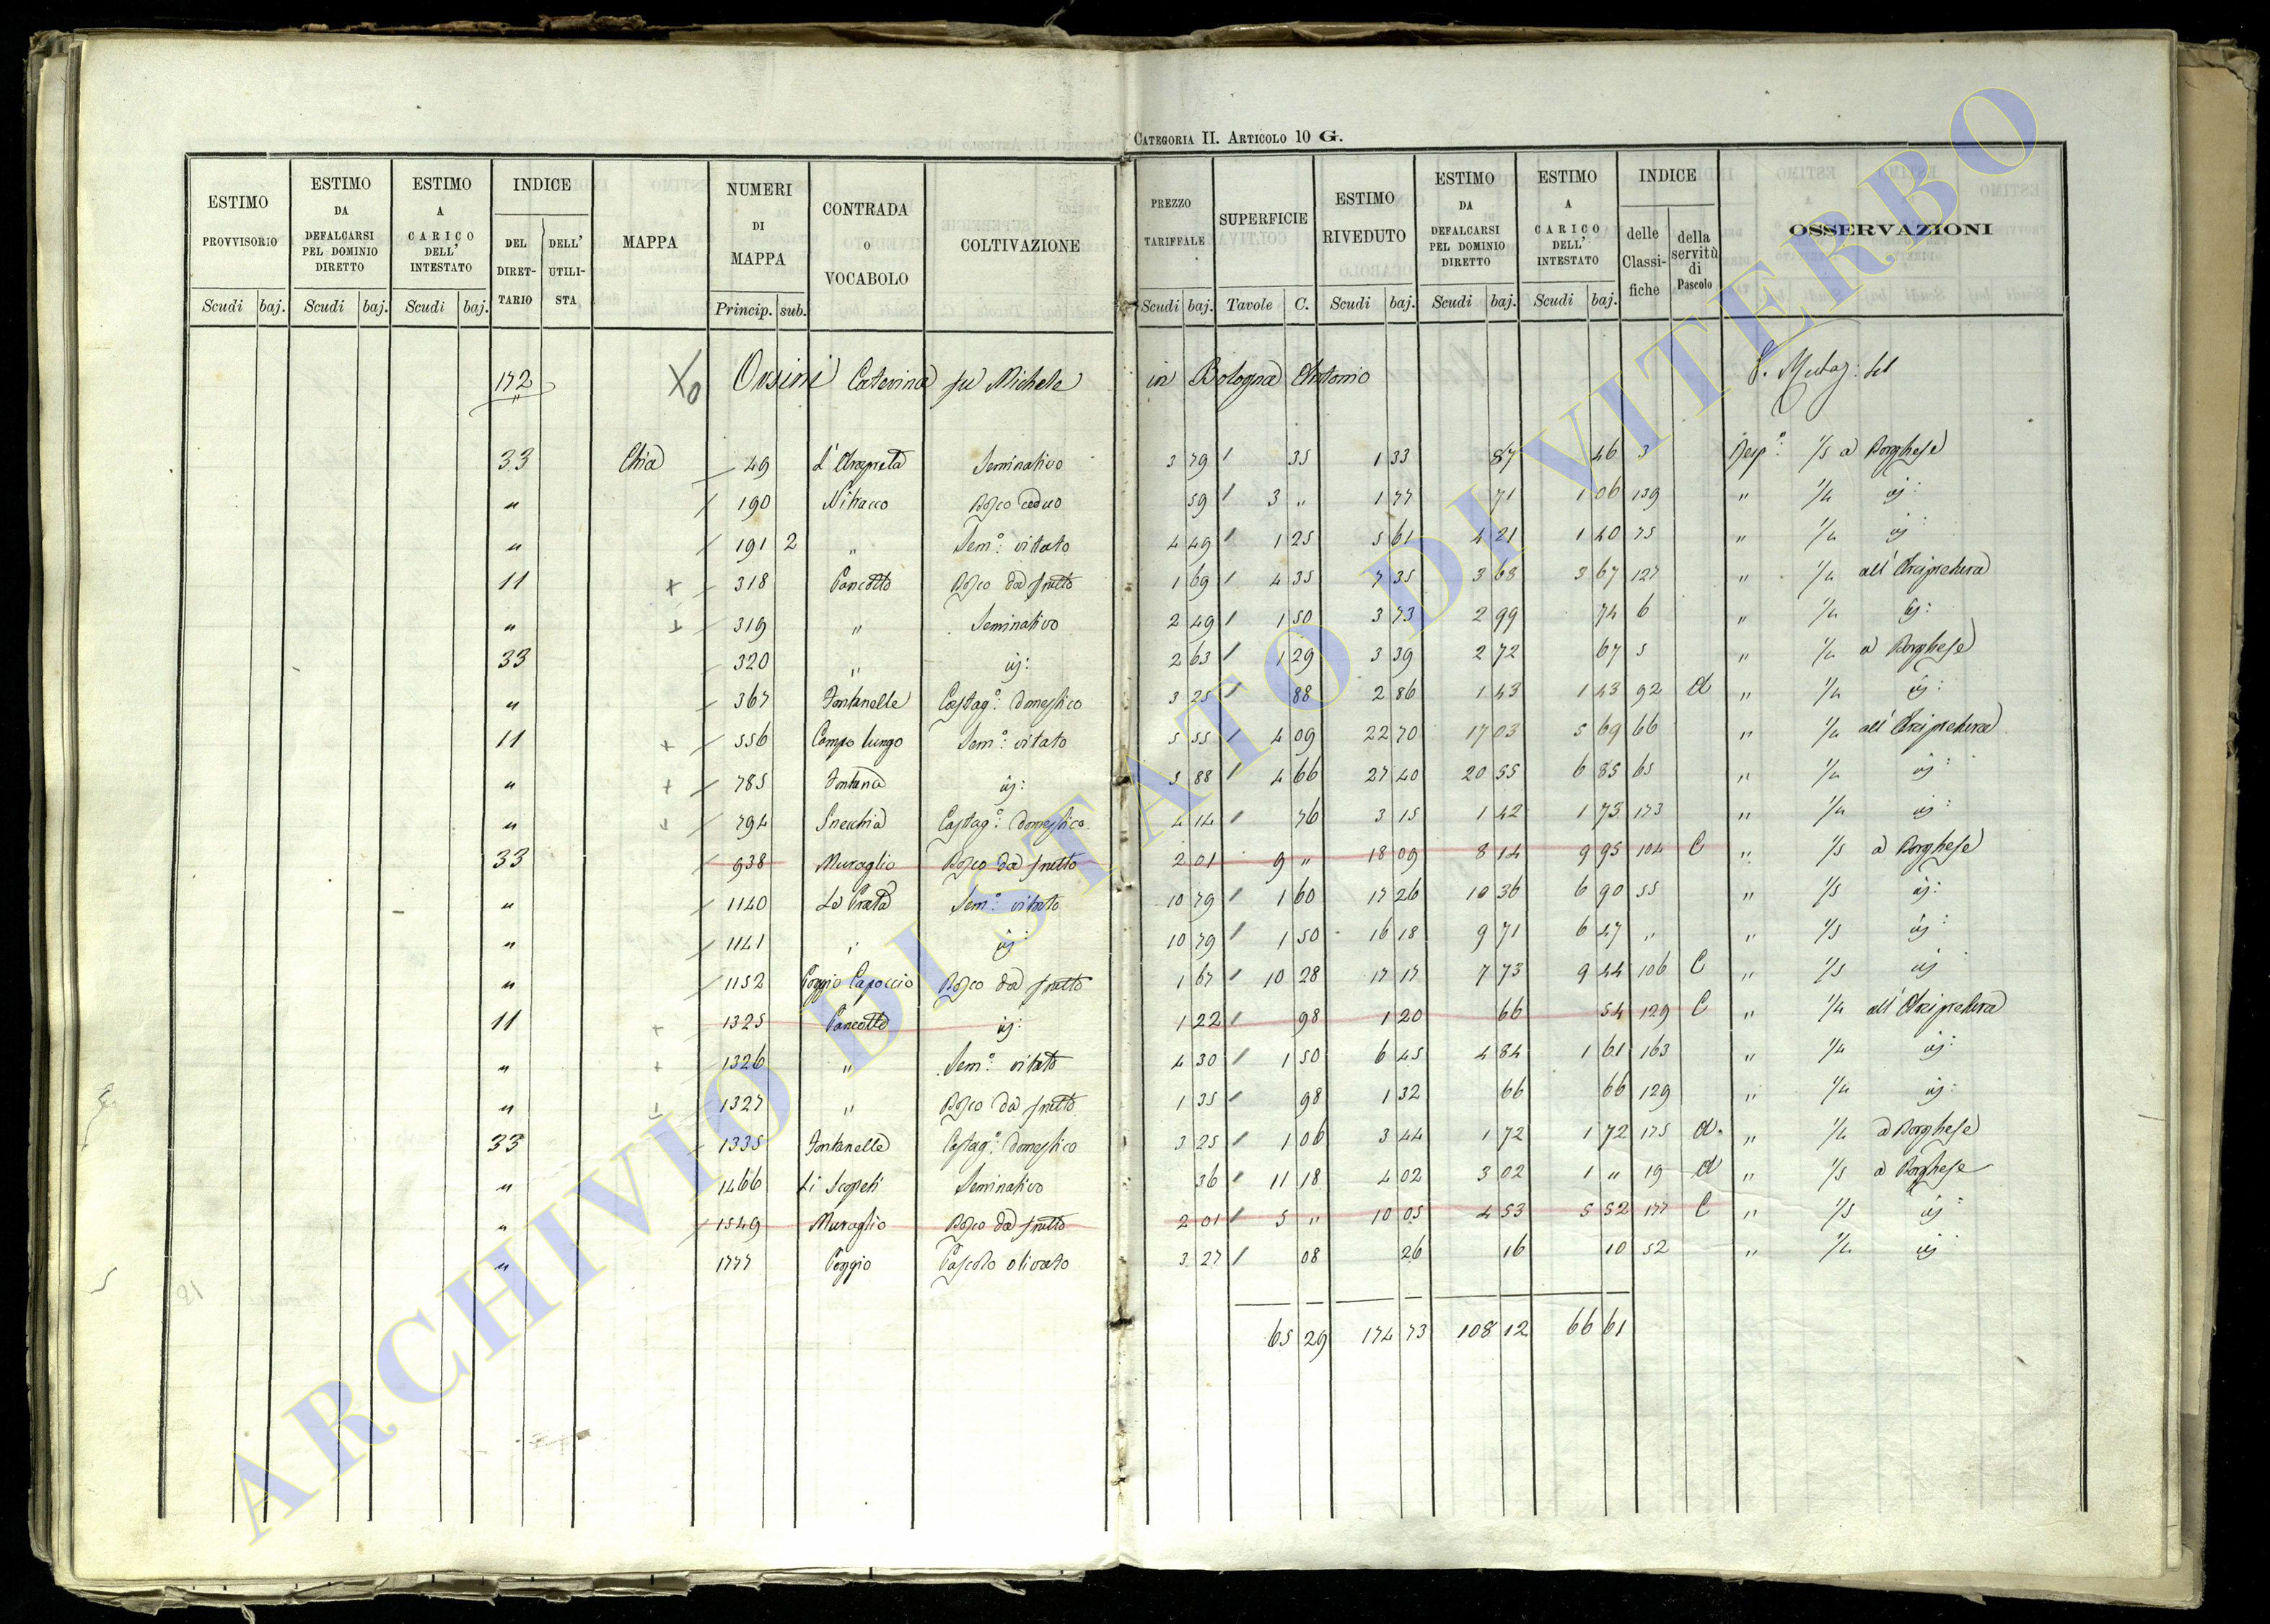 CATEGORIA II. ARTICOLO 10 G.
ESTIMO PROVVISORIO
ESTIMO DA DEFALCARSI PEL DOMINIO DIRETTO
ESTIMO A CARICO DELL' INTESTATO
INDICE
DEL DIRETTARIO
DELL' UTILISTA
MAPPA
NUMERI DI MAPPA
CONTRADA O VOCABOLO
COLTIVAZIONE
PREZZO TARIFFALE
SUPERFICIE
ESTIMO RIVEDUTO
ESTIMO DA DEFALCARSI PEL DOMINIO DIRETTO
ESTIMO A CARICO DELL' INTESTATO
INDICE
delle Classifiche
della servitù di Pascolo
OSSERVAZIONI
Scudi baj. Scudi baj. Scudi baj. Princip. sub. Scudi baj. Tavole C. Scudi baj. Scudi baj. Scudi baj.
172 Xo Orsini Caterina fu Michele in Bologna Antonio
33 Chia 49 Seminativo 3 79 35 1 33 87 46 3 Resp: 1/5 a Borghese
" 190 Nitracco Bosco ceduo 59 3 " 1 77 71 1 06 139 " 1/4 id:
" 191 2 " Sem: vitato 4 49 1 25 5 61 4 21 1 40 75 " 1/4 id
11 318 Pancotto Bosco da frutto 1 69 4 35 7 35 3 68 3 67 127 " 1/4 all'Arcipretura
" 319 " Seminativo 2 49 1 50 3 73 2 99 74 6 " 1/4 id:
33 320 " id: 2 63 1 29 3 39 2 72 67 5 " 1/4 a Borghese
" 367 Fontanelle Castag: domestico 3 25 88 2 86 1 43 1 43 92 A " 1/4 id:
11 556 Campo lungo Sem: vitato 5 55 4 09 22 70 17 03 5 69 66 " 1/4 all'Arcipretura
" 785 Fontana id: 5 88 4 66 27 40 20 55 6 85 65 " 1/4 id:
" 794 Castag: domestico 4 14 76 3 15 1 42 1 73 173 " 1/4 id:
33 938 Muraglio Bosco da frutto 2 01 9 " 18 09 8 14 9 95 104 C " 1/5 a Borghese
" 1140 La Prata Sem: vitato 10 79 1 60 17 26 10 36 6 90 55 " 1/5 id:
" 1141 " id: 10 79 1 50 16 18 9 71 6 47 " " 1/5 id:
" 1152 Poggio Capoccio Bosco da frutto 1 67 10 28 17 17 7 73 9 44 106 C " 1/5 id
11 1325 Pancotto id: 1 22 98 1 20 66 54 129 C " 1/4 all'Arcipretura
" 1326 " Sem: vitato 4 30 1 50 6 45 4 84 1 61 163 " 1/4 id:
" 1327 " Bosco da frutto 1 35 98 1 32 66 66 129 " 1/4 id:
33 1335 Fontanelle Castag: domestico 3 25 1 06 3 44 1 72 1 72 175 A " 1/4 a Borghese
" 1466 Li Scopeti Seminativo 36 11 18 4 02 3 02 1 " 19 A " 1/5 a Borghese
" 1549 Muraglio Bosco da frutto 2 01 5 " 10 05 4 53 5 52 177 C " 1/5 id:
" 1777 Poggio Pascolo olivato 3 27 08 26 16 10 52 " 1/4 id
65 29 174 73 108 12 66 61
ARCHIVIO DI STATO DI VITERBO